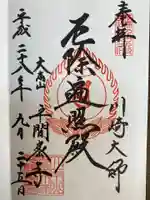 奉拝
川崎大師
厄除遍照殿
大本山平間寺
平成二十八年九月二十五日